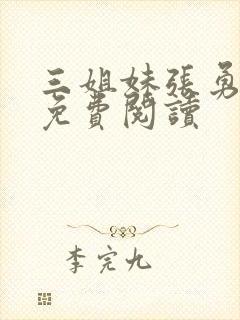 三姐妹张勇
免費閱讀
李完九